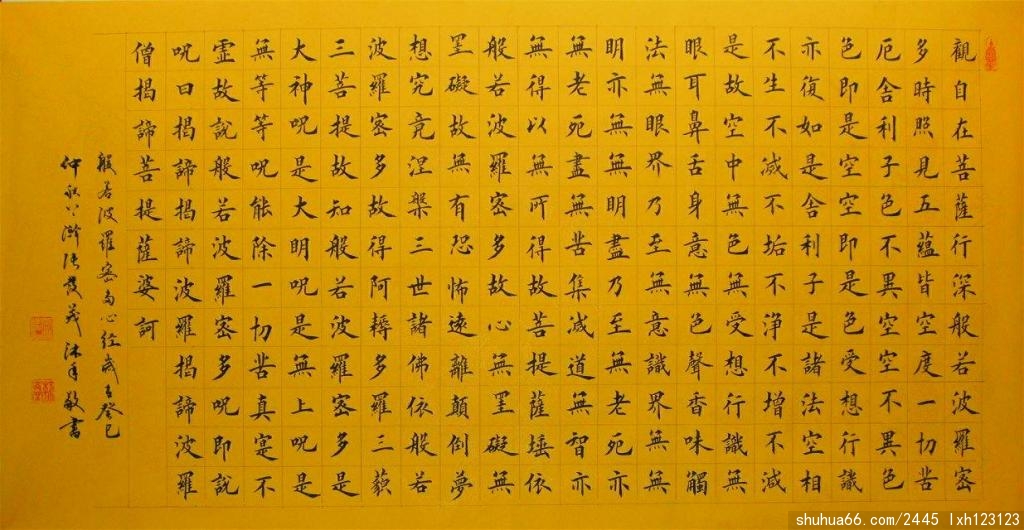 觀自在菩薩行深般若波羅密
多時照見五蘊皆空度一切苦
厄舍利子色不異空空不異色
色即是空空即是色受想行識
亦復如是舍利子是諸法空相
不生不滅不垢不淨不增不減
是故空中無色無受想行識無
眼耳鼻舌身意無色聲香味觸
法無眼界乃至無意識界無無
明亦無無明盡乃至無老死亦
無老死盡無苦集滅道無智亦
無得以無所得故菩提薩埵依
般若波羅密多故心無罣礙無
罣礙故無有恐怖遠離顛倒夢
想究竟涅槃三世諸佛依般若
波羅密多故得阿耨多羅三藐
三菩提故知般若波羅密多是
大神呪是大明呪是無上呪是
無等等呪能除一切苦真寔不
靈故說般若波羅密多呪即說
呪曰揭諦揭諦波羅揭諦波羅
僧揭諦菩提薩婆訶
般若波羅密多心經歲在癸巳
仲秋沐手敬書
shuhua66.com/2445 lxh123123